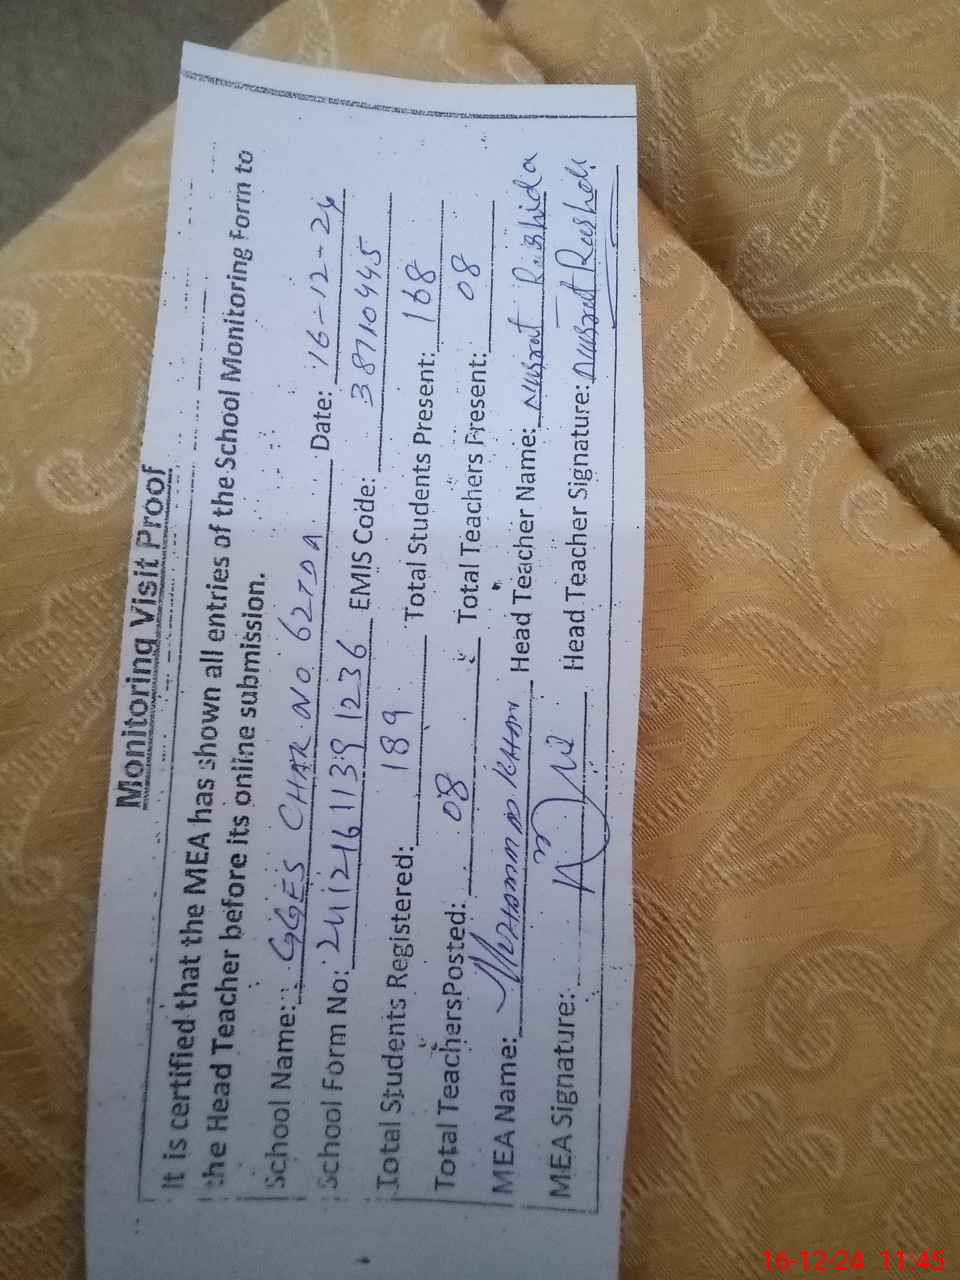 Monitoring Visit Proof
It is certified that the MEA has shown all entries of the School Monitoring Form to
the Head Teacher before its online submission.
School Name: GGES CHAK NO 62TDA Date: 16-12-24
School Form No: 24121611391236 EMIS Code: 38710445
Total Students Registered: 189 Total Students Present: 168
Total TeachersPosted: 08 Total Teachers Present: 08
MEA Name: Muhammad Khan Head Teacher Name: Nusrat Rashida
MEA Signature: Head Teacher Signature: Nusrat Rashida
16-12-24 11:45